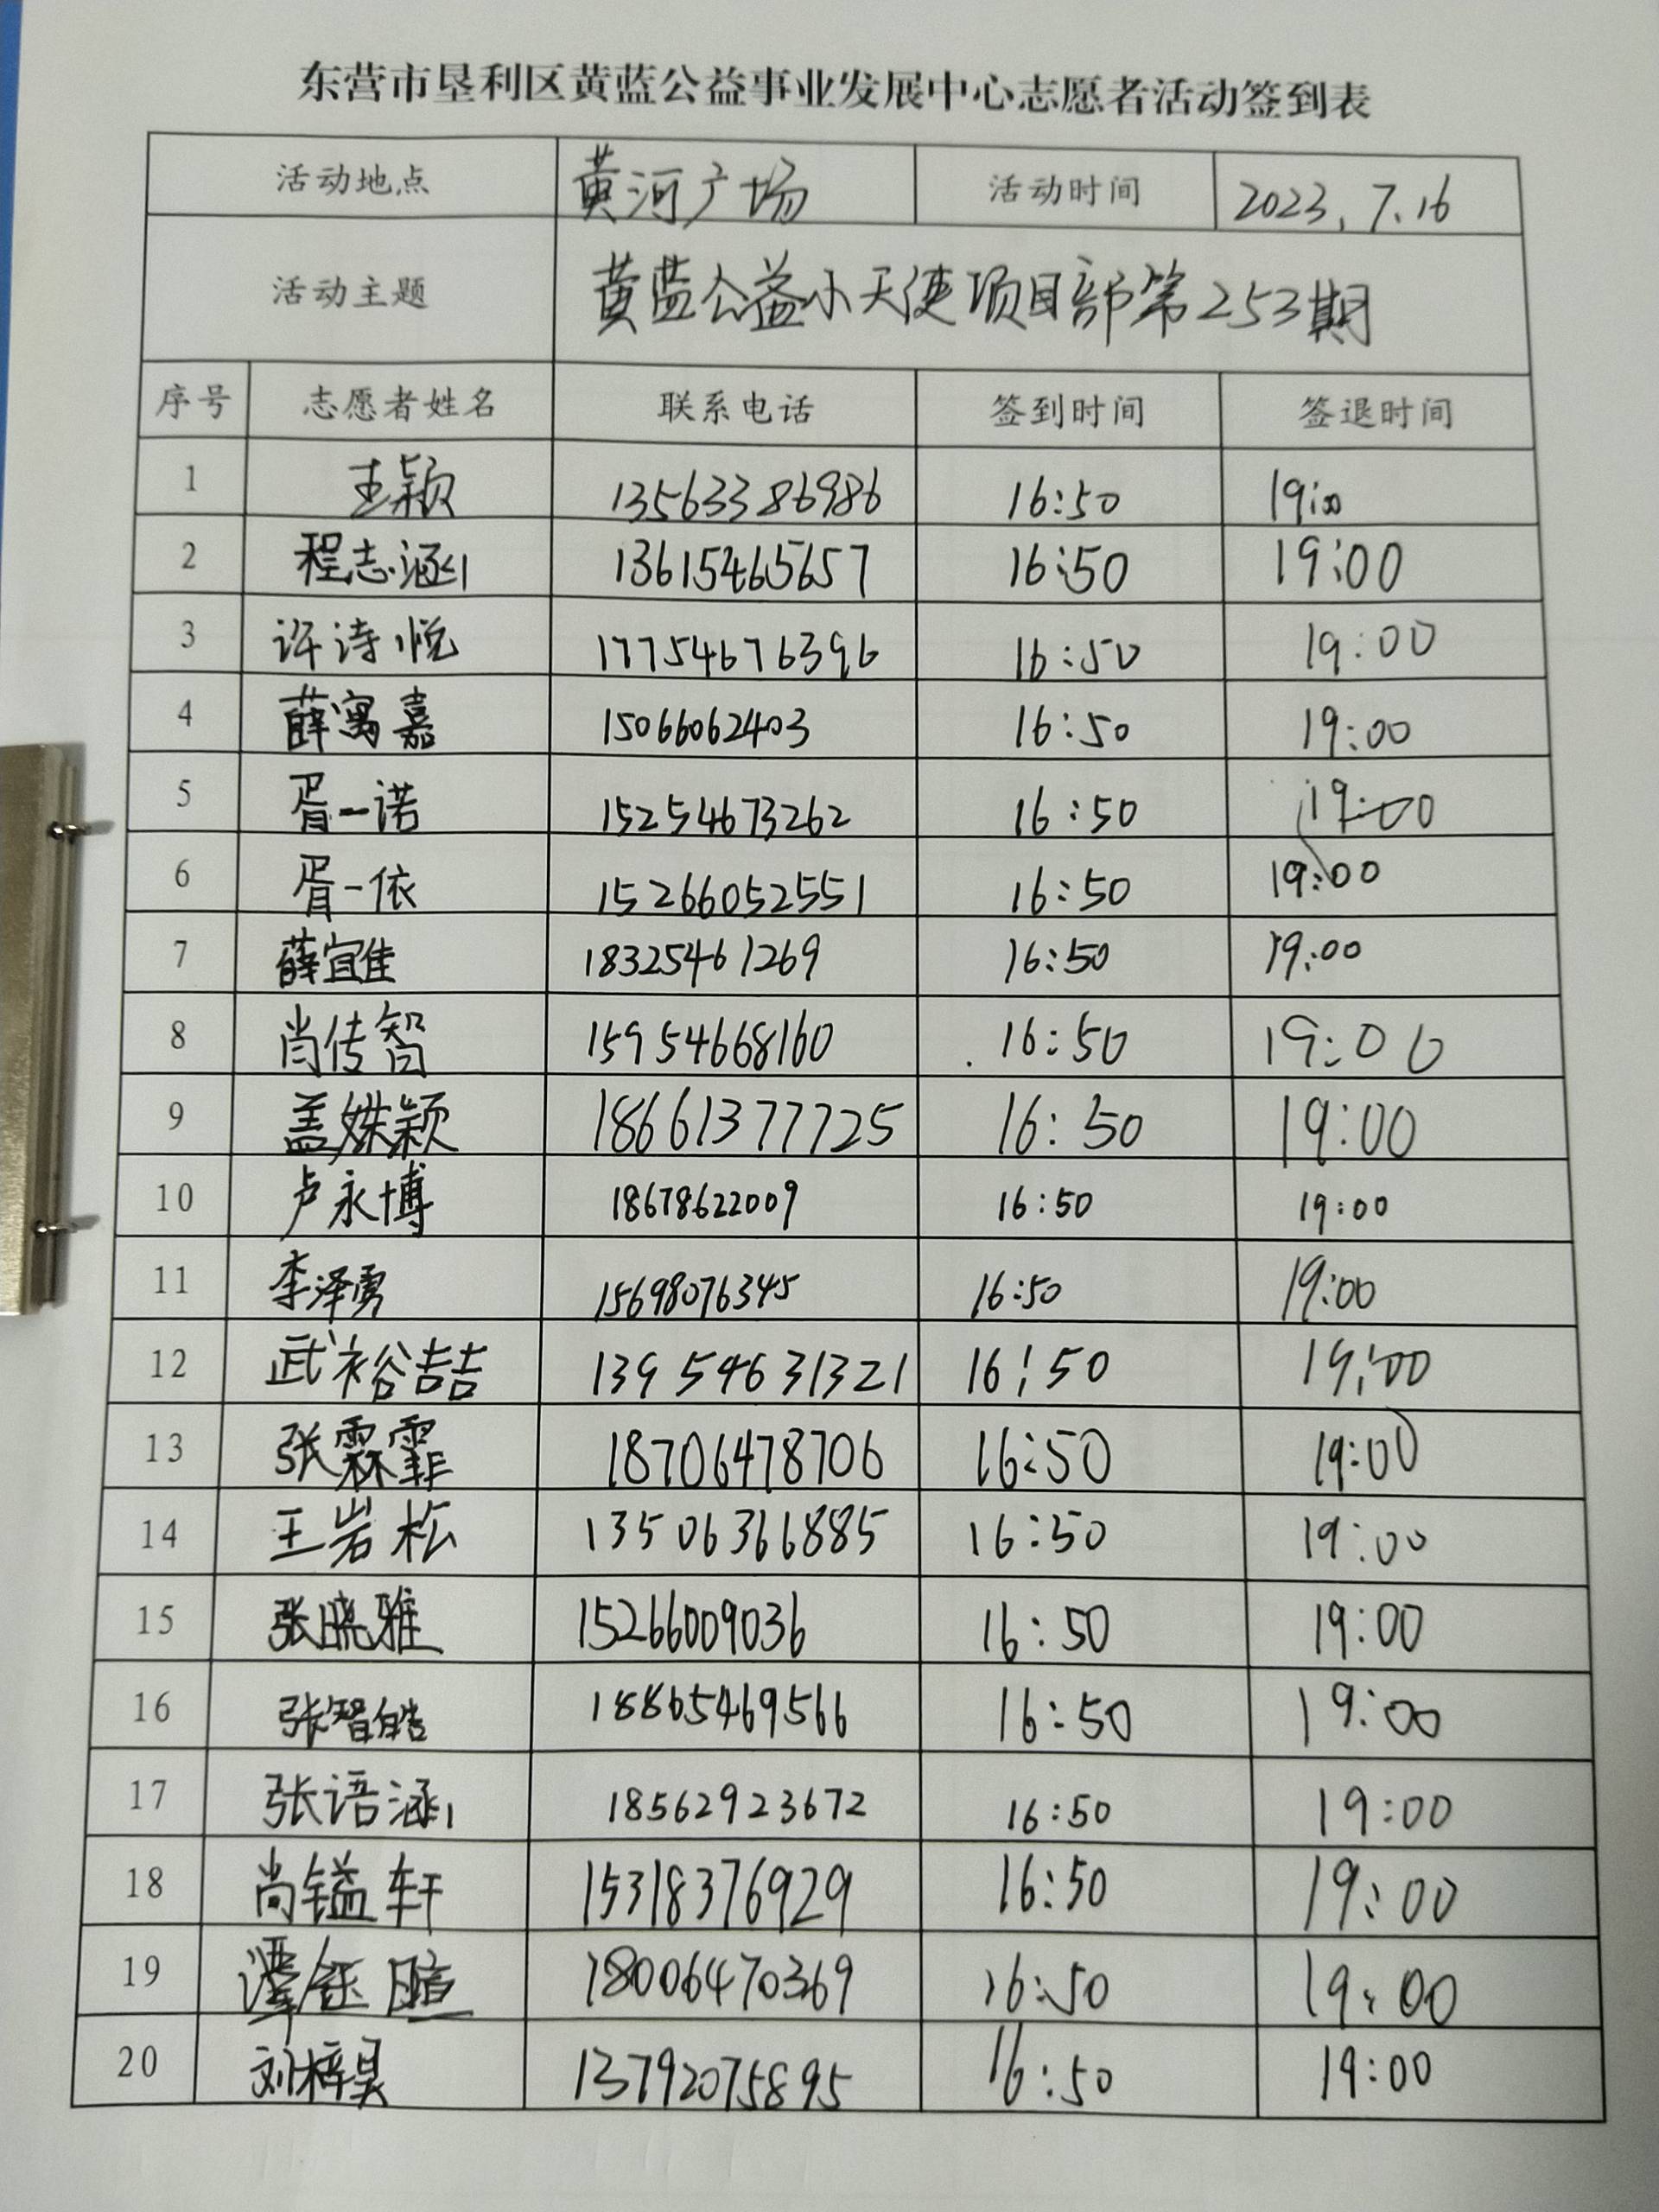 东营市垦利区黄蓝公益事业发展中心志愿者活动签到表
活动地点 黄河广场 活动时间 2023.7.16
活动主题 黄蓝公益小天使项目部第253期
序号 志愿者姓名 联系电话 签到时间 签退时间
1 王颖 13563386986 16:50 19:00
2 程志涵 13615465657 16:50 19:00
3 许诗悦 17754676396 16:50 19:00
4 薛寓嘉 15066062403 16:50 19:00
5 胥一诺 15254673262 16:50 19:00
6 胥一依 15266052551 16:50 19:00
7 薛宜佳 18325461269 16:50 19:00
8 尚传智 15954668160 16:50 19:00
9 盖姝颖 18661377725 16:50 19:00
10 卢永博 18678622009 16:50 19:00
11 李泽勇 15698076345 16:50 19:00
12 武裕喆 13954631321 16:50 19:00
13 张霖霏 18706478706 16:50 19:00
14 王岩松 13506366885 16:50 19:00
15 张晓雅 15266009036 16:50 19:00
16 张智皓 18865469566 16:50 19:00
17 张语涵 18562923672 16:50 19:00
18 尚镒轩 15318376929 16:50 19:00
19 钰暄 18006470369 16:50 19:00
20 刘梓昊 13792075895 16:50 19:00